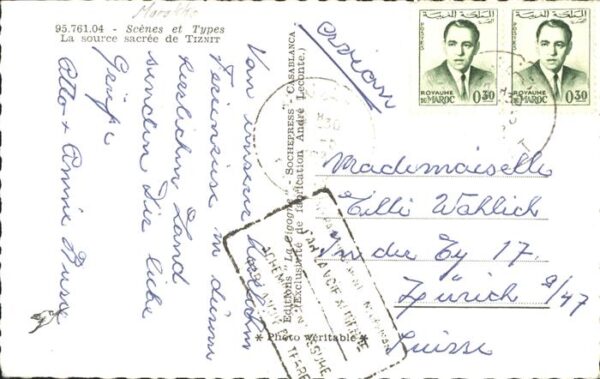 Marokko
95.761.04 - Scènes et Types
La source sacrée de TIZNIT
Von unserer
Ferienreise in diesem
herrlichen Land
senden Dir liebe
Grüsse
Otto + Annie
Editions "La Cigogne" - SOCHEPRESS - CASABLANCA
(Exclusivité de fabrication André Leconte.)
* Photo véritable *
avion
المملكة المغربية
ROYAUME
DU MAROC
0,30
المملكة المغربية
ROYAUME
DU MAROC
0,30
Mademoiselle
Tilli Wahlich
In der Ey 17.
Zürich 9/47
Suisse
PAR LA VOIE AERIENNE